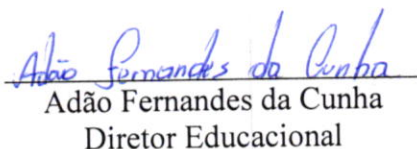 Adão Fernandes da Cunha
Adão Fernandes da Cunha
Diretor Educacional